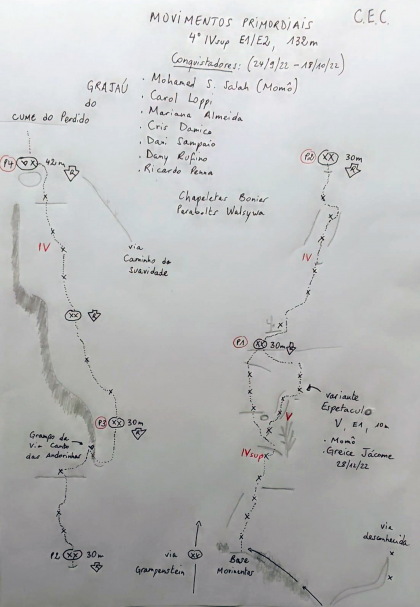 MOVIMENTOS PRIMORDIAIS
C.E.C.
4° IVsup E1/E2, 132m
Conquistadores: (24/9/22 - 18/10/22)
GRAJAÚ
do
. Mohamed S. Salah (Momô)
. Carol Loppi
. Mariana Almeida
. Cris Damico
. Dani Sampaio
. Dany Rufino
. Ricardo Penna
CUME do Perdido
P4 XX 42m
R
Chapeletas Bonier
Parabolts Walsywa
P2 XX 30m
R
IV
via
Caminho da
Suavidade
IV
XX
R
P1 XX 30m
R
P3 XX 30m
R
variante
Espetáculo
V, E1, 10m
. Momô
. Greice Jácome
28/12/22
V
Grampo da
Via Canto
das Andorinhas
IVsup
P2 XX 30m
R
via
Grampenstein
XX
Base
Movimentos
via
desconhecida